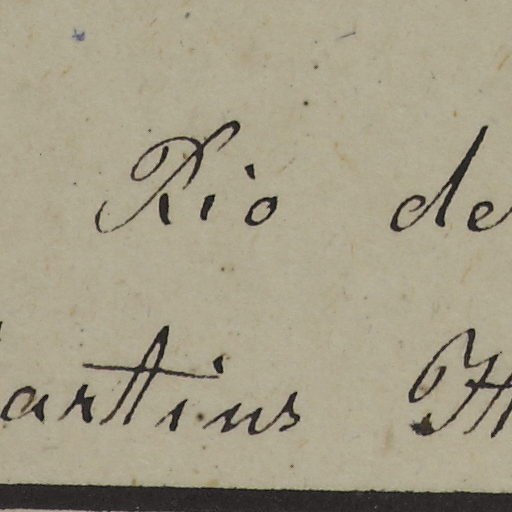 Rio de
artins H